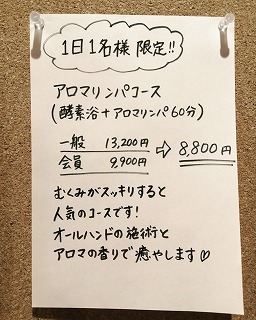 1日1名様 限定!!
アロマリンパコース
(酵素浴+アロマリンパ60分)
一般 13,200円 ⇨ 8,800円
会員 9,900円
むくみがスッキリすると
人気のコースです!
オールハンドの施術と
アロマの香りで癒やします♡